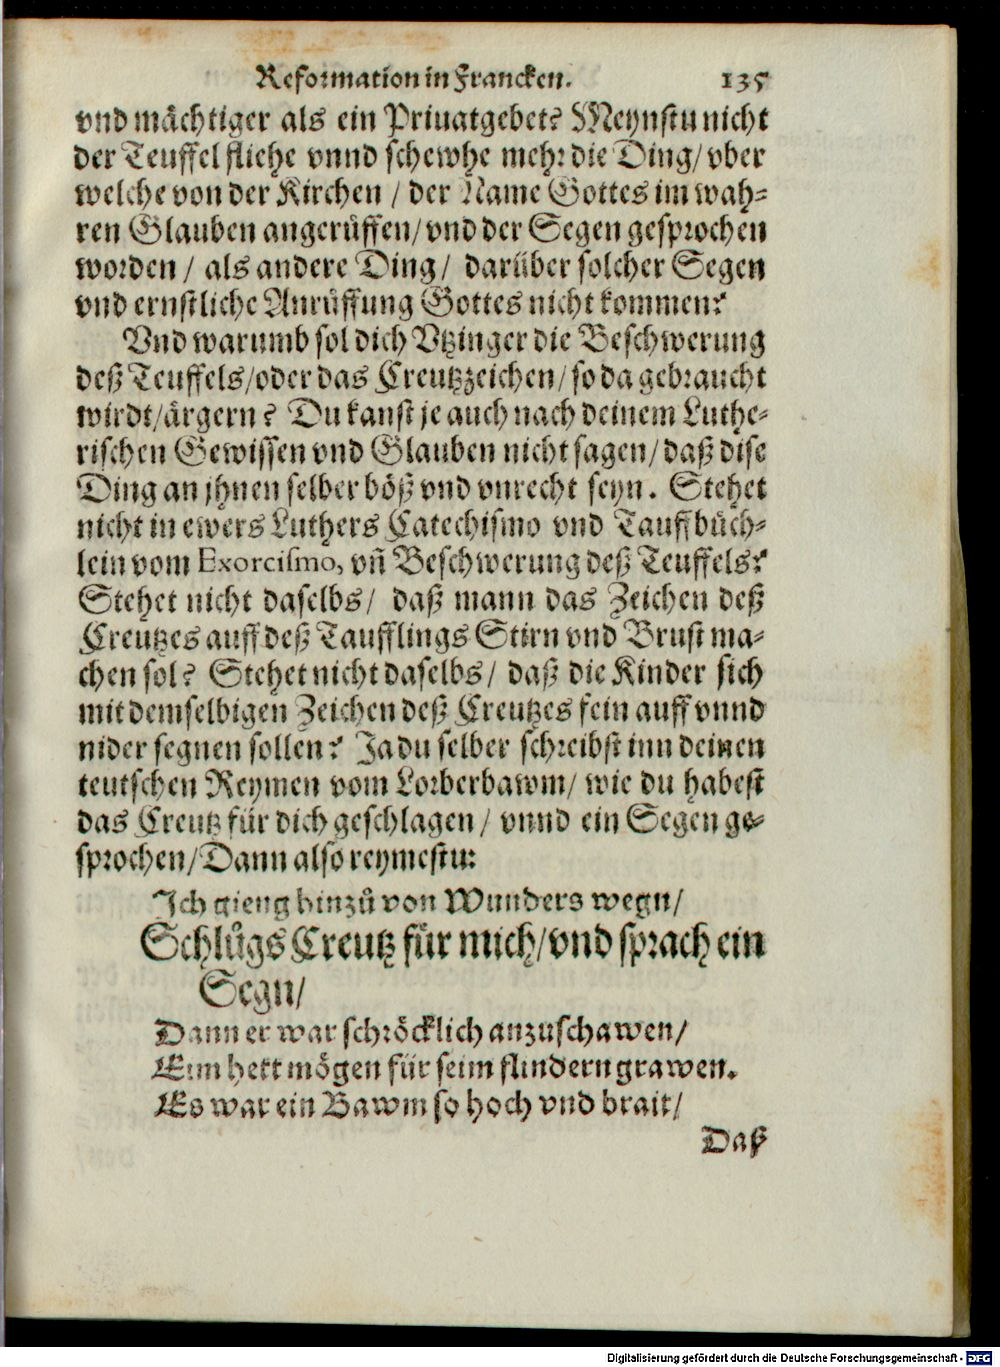 Reformation in Francken. 135
vnd mächtiger als ein Priuatgebet? Meynstu nicht
der Teuffel fliehe vnnd schewhe mehr die Ding/ vber
welche von der Kirchen / der Name Gottes im wah-
ren Glauben angerůffen/ vnd der Segen gesprochen
worden / als andere Ding/ darüber solcher Segen
vnd ernstliche Anrůffung Gottes nicht kommen?
Vnd warumb sol dich Vtzinger die Beschwerung
deß Teuffels/oder das Creutzzeichen/ so da gebraucht
wirdt/ärgern? Du kanst je auch nach deinem Luthe-
rischen Gewissen vnd Glauben nicht sagen/ daß dise
Ding an jhnen selber böß vnd vnrecht seyn. Stehet
nicht in ewers Luthers Catechismo vnd Tauffbůch-
lein vom Exorcismo, vn̄ Beschwerung deß Teuffels?
Stehet nicht daselbs/ daß mann das Zeichen deß
Creutzes auff deß Taufflings Stirn vnd Brust ma-
chen sol? Stehet nicht daselbs/ daß die Kinder sich
mit demselbigen Zeichen deß Creutzes fein auff vnnd
nider segnen sollen? Ja du selber schreibst inn deinen
teutschen Reymen vom Lorberbawm/ wie du habest
das Creutz für dich geschlagen / vnnd ein Segen ge-
sprochen/Dann also reymestu:
Ich gieng hinzů von Wunders wegn/
Schlůgs Creutz für mich/vnd sprach ein
Segn/
Dann er war schröcklich anzuschawen/
Eim hett mögen für seim flindern grawen.
Es war ein Bawm so hoch vnd brait/
Daß
Digitalisierung gefördert durch die Deutsche Forschungsgemeinschaft - DFG